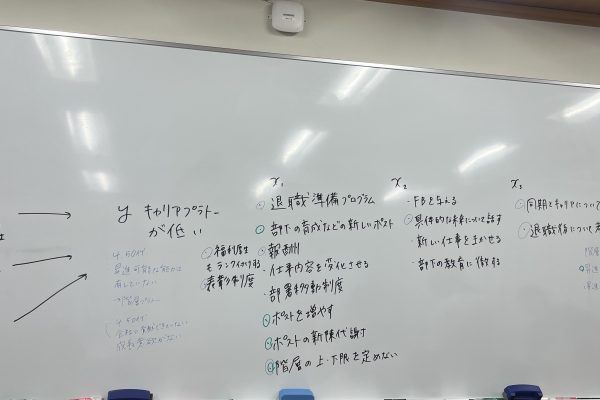 y キャリアプラトー
が低い
4.50代
昇進可能な能力は
有していない
①福利厚生
もランク付けする
表彰制度
x₁
退職準備プログラム
部下の育成などの新しいポスト
報酬
・仕事内容を変化させる
・部署移動制度
ポストを増やす
ポストの新陳代謝
階層の上・下限を定めない
x₂
・FBを与える
具体的な未来について話す
・新しい仕事をまかせる
・部下の教育に徹する
x₃
同期とキャリアについて
退職後について